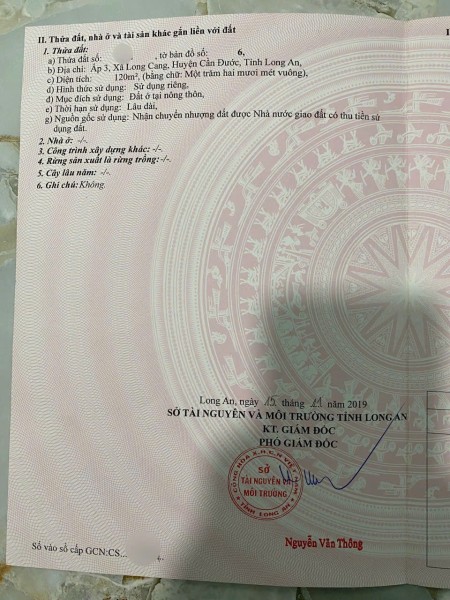 II. Thửa đất, nhà ở và tài sản khác gắn liền với đất
1. Thửa đất:
a) Thửa đất số: , tờ bản đồ số: 6,
b) Địa chỉ: Ấp 3, Xã Long Cang, Huyện Cần Đước, Tỉnh Long An,
c) Diện tích: 120m², (bằng chữ: Một trăm hai mươi mét vuông),
d) Hình thức sử dụng: Sử dụng riêng,
đ) Mục đích sử dụng: Đất ở tại nông thôn,
e) Thời hạn sử dụng: Lâu dài,
g) Nguồn gốc sử dụng: Nhận chuyển nhượng đất được Nhà nước giao đất có thu tiền sử
dụng đất.
2. Nhà ở: -/-.
3. Công trình xây dựng khác: -/-.
4. Rừng sản xuất là rừng trồng: -/-.
5. Cây lâu năm: -/-.
6. Ghi chú: Không.
Long An, ngày 15 tháng 11 năm 2019
SỞ TÀI NGUYÊN VÀ MÔI TRƯỜNG TỈNH LONG AN
KT. GIÁM ĐỐC
PHÓ GIÁM ĐỐC
CỘNG HÒA X.H.C.N VIỆT NAM
SỞ
TÀI NGUYÊN VÀ
MÔI TRƯỜNG
TỈNH LONG AN
Nguyễn Văn Thông
Số vào sổ cấp GCN:CS...